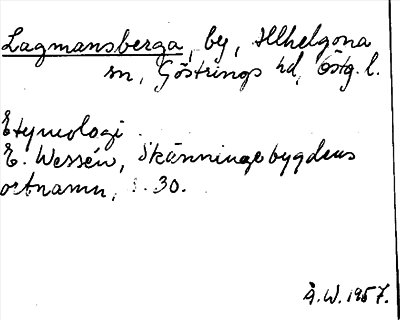 Lagmansberga, by, Allhelgona
sn, Göstrings hd, Östg. l.
Etymologi.
E. Wessén, Skänningebygdens
ortnamn, s. 30.
Å.W. 1957.